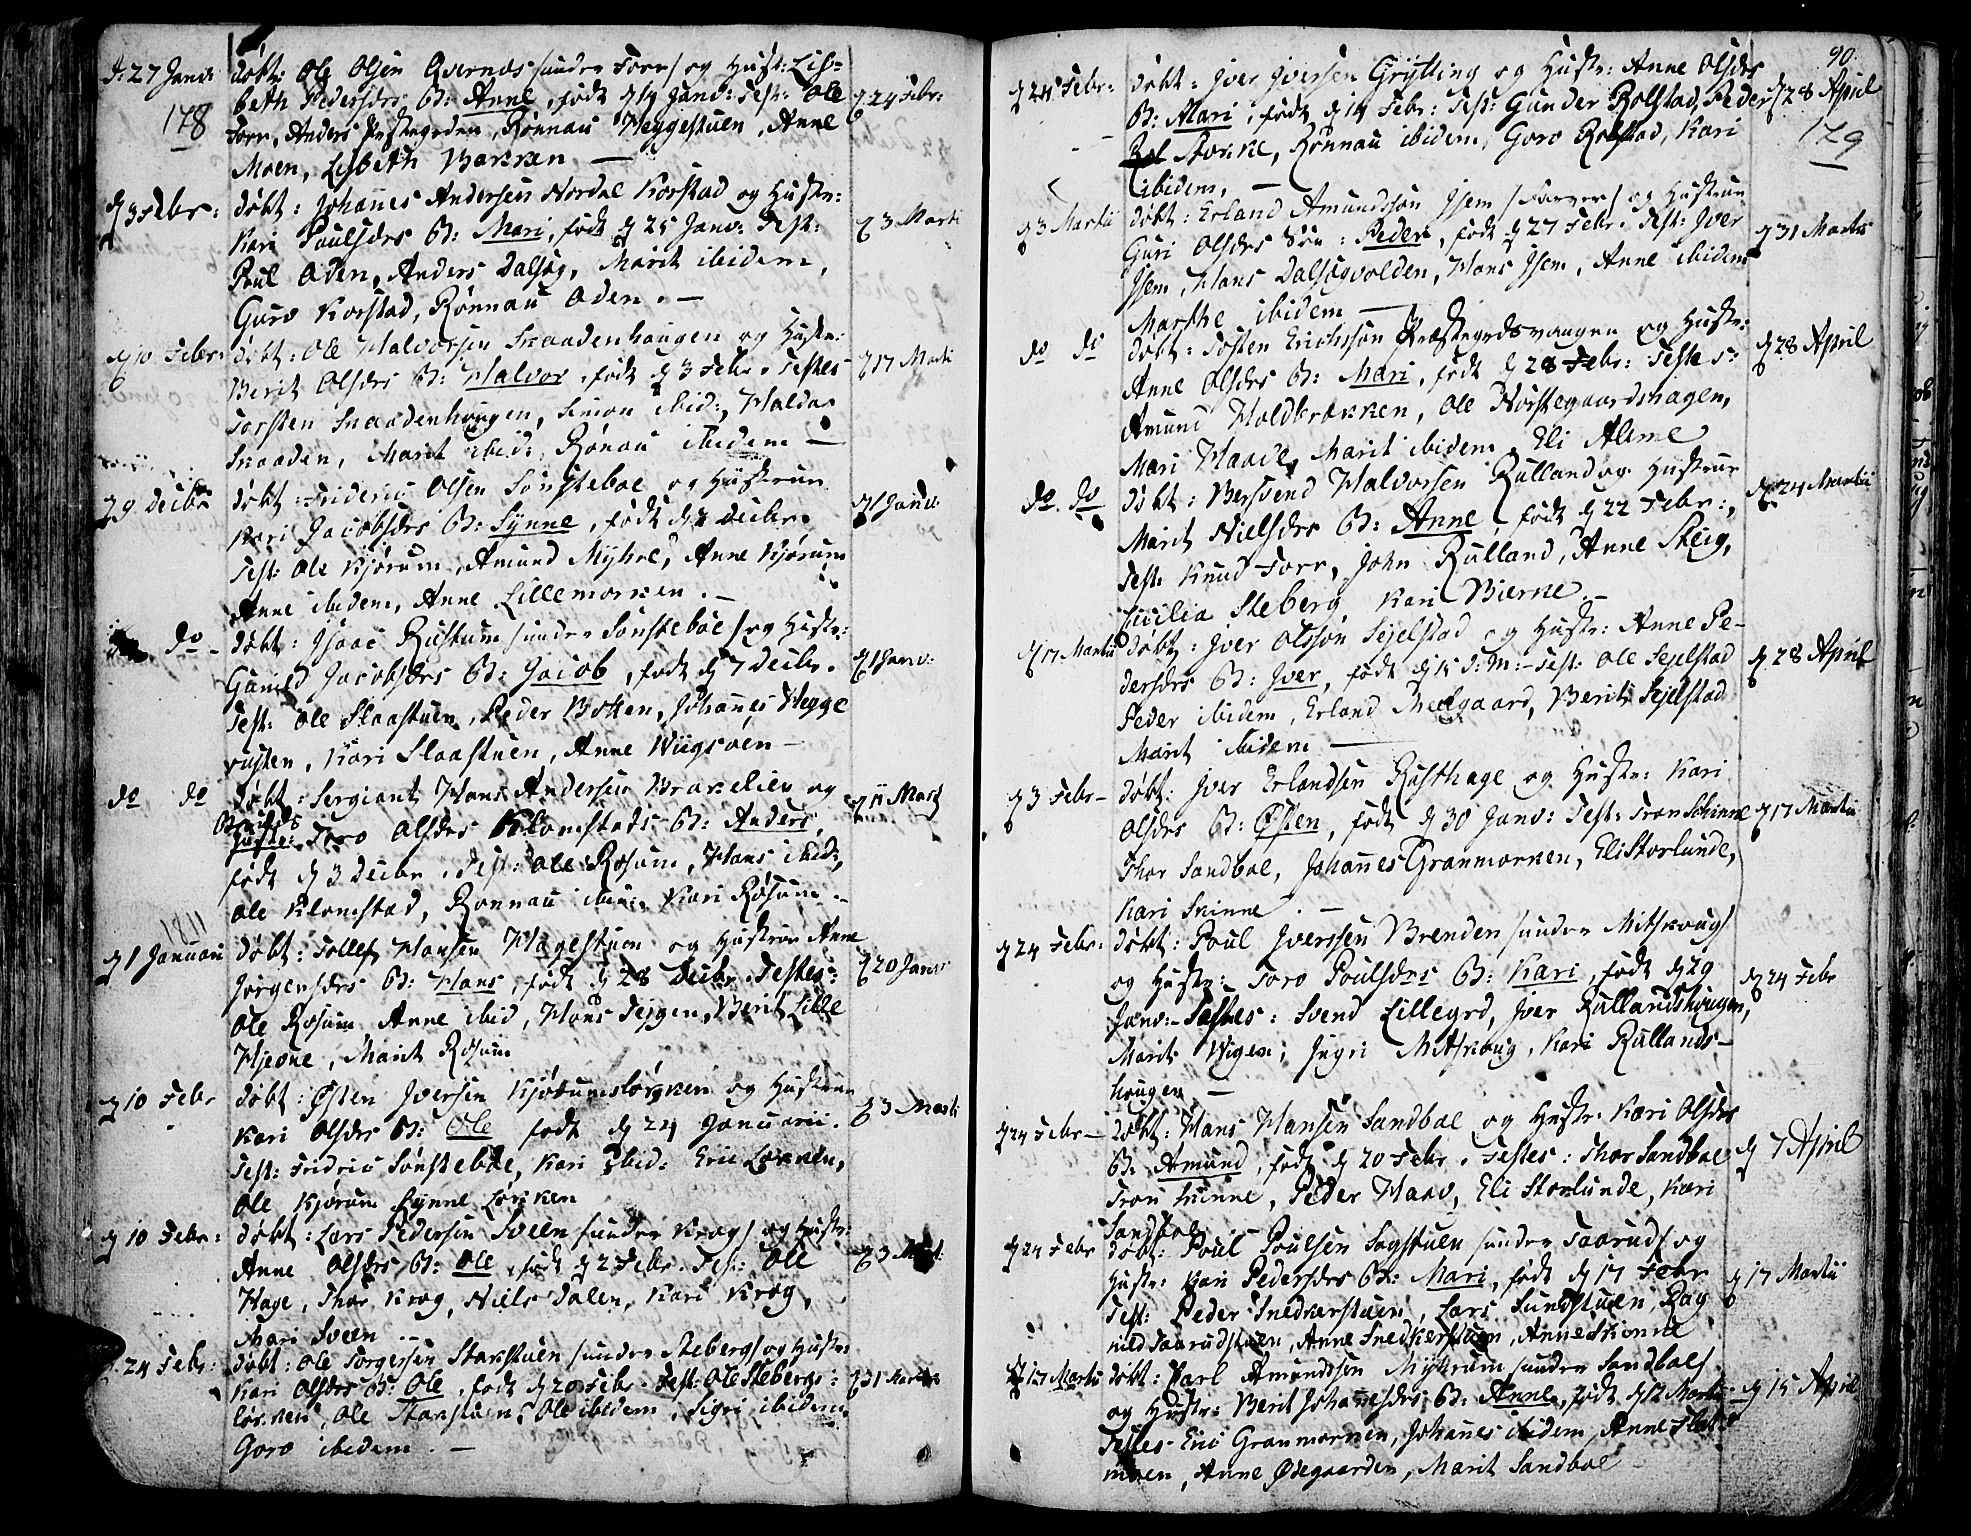 d: 27 Janv:
178
døbt: Ole Olsen Qvernæs /under Forr/ og Hustr: Lis=
beth Pedersdrs B: Anne, født d 19 Janv: Test: Ole
Forr, Anders Præstegrden, Rønnau Heggestuen, Anne
Moen, Lisbeth Bakken —
d 24 Febr:
d 3 Febr:
døbt: Johannes Andersen Nordal Korstad og Hustr:
Kari Poulsdrs B: Mari, født d 25 Janv: Test:
Poul Oden, Anders Dalseg, Marit ibidem,
Guro Korstad, Rønnau Oden. —
d 3 Marti
d 10 Febr:
døbt: Ole Halvorsen Skaadenhougen og Hustr:
Berit Olsdrs B: Halvor, født d 3 Febr. Testes
Torsten Skaadenhougen, Simon ibid:, Haldor
Skaaden, Marit ibid:, Rønau ibidem —
d 17 Marti
29 Decbr
døbt: Frideric Olsen Sønsteboe og Hustrue
Kari Jacobsdrs B: Synne, født d Decbr.
Test: Ole Kjørum, Amund Myhre, Anne Kjørum
Anne ibidem, Anne Lillemorken. —
d 1 Janv
do —
døbt: Isaac Rustum /under Sønsteboe/ og Hustr:
Gunild Jacobsdrs B: Jacob, født d 7 Decbr.
Test: Ole Slaastuen, Peder Botten, Johannes Hegge
rusten, Kari Slaastuen, Anne Wiigsøen —
d 1 Janv:
do do
døbt: Sergiant Hans Andersen Brakelien og
Hustr: Toro Olsdrs Klomstads B: Anders,
født d 3 Decbr. Test: Ole Rosum, Hans ibid:,
Ole Klomstad, Rønnau ibid:, Kari Rosum —
d 11 Mart
1811
d 1 Januari
døbt: Tollef Hansen Hagestuen og Hustrue Anne
Jørgensdrs B: Hans, født d 28 Decbr. Testes:
Ole Rosum Anne ibid, Hans Teigen, Berit Lille
Hjeone, Marit Rosum
d 20 Janv
d 10 Febr
døbt: Østen Iversen Kjørumsløkken og Hustrue
Kari Olsdrs B: Ole født d 24 Januarii.
Test: Fridric Sønsteboe, Kari ibid: Eric Løkken,
Ole Kjørum Synne Løkken
d 3 Marti
d 10 Febr:
døbt: Lars Pedersen Sveen /under Krog/ og Hustr:
Anne Olsdrs B: Ole, født d 2 Febr. Test: Ole
Hage, Thor Krog, Niels Dalen, Kari Krog,
Mari Sveen
d 3 Mart:
d. 24 Febr:
døbt: Ole Torgersen Stakstuen /under Steberg/ og Hustr
Kari Olsdrs B: Ole, født d 20 Febr. Test: Ole Stebergs=
løkken, Ole Stakstuen, Ole ibidem, Sigri ibidem,
Goro ibidem. —
d 31 Martii
90.
179
d 24 Febr:
døbt: Iver Iversen Grytting og Hustr: Anne Olsdrs
B: Mari, født d 14 Febr: Test: Gunder Rolstad, Peder
Storke, Rønnau ibidem, Goro Rolstad, Kari
ibidem, —
d 28 April
d 3 Martii
døbt: Erland Amundsøn Isem /Farver/ og Hustrue
Guri Olsdrs Søn: Peder, født d 27 Febr. Test: Iver
Isem, Hans Dalsegvolden, Hans Isem, Anne ibidem
Marthe ibidem —
d 31 Martii
do do
døbt: Tosten Erichssøn Præstegrdsvangen og Hustr:
Anne Olsdrs B: Mari, født d 28 Febr: Testes:
Amund Holdbrækken, Ole Præstegaardshagen,
Mari Haave, Marit ibidem, Eli Alme
d 28 April
do do
døbt: Bersvend Haldorsen Rulland og Hustrue
Marit Nielsdrs B: Anne, født d 22 Febr:,
Test: Knud Forr, John Rulland, Anne Steig,
Cicilia Steberg, Kari Bierke. —
d 24 Martii
d 17 Martii
døbt: Iver Olssøn Sejelstad og Hustr: Anne Pe-
dersdrs B: Iver, født d 15 d: M: — Test: Ole Sejelstad
Peder ibidem, Erland Melgaard, Berit Sejelstad
Marit ibidem —
d 28 April
d 3 Febr —
døbt: Iver Erlandsen Rusthage og Hustr: Kari
Olsdrs B: Østen, født d 30 Janv: Test: Tron Schinne
Thor Sandboe, Johannes Granmorken, Eli Storlunde,
Kari Skinne. —
d 17 Martii
d 24 Febr:
døbt: Poul Iverssen Brenden /under Mitskoug/
og Hustr: Toro Poulsdrs B: Kari, født d 29
Janv: — Testes: Svend Lillegrd, Iver Rullandshougen,
Marit Wigen, Ingri Mitskoug, Kari Rullands-
hougen —
d 24 Febr
d 24 Febr —
døbt: Hans Hansen Sandboe og Hustr: Kari Olsdrs
B: Amund, født d 20 Febr. Testes: Thor Sandboe
Tron Skinne, Peder Haav, Eli Storlunde, Kari
Sandboe
d 7 April
d 24 Febr
døbt: Poul Poulsen Sagstuen /under Taarud/ og
Hustr: Kari Pedersdrs B: Mari, født d 17 Febr
Test: Peder Snedkerstuen, Lars Sundstuen, Rag
nild Taarudstuen, Anne Snedkerstuen, Anne Skinne
d 17 Martii
d 17 Martii
døbt: Parl Amundssøn Myhrum /under Sandboe/
og Hustr: Berit Johannesdrs B: Anne, født d 12 Martii
Testes Eric Granmorken, Johannes ibidem, Anne Slet
moen, Anne Ødegaarden, Marit Sandboe —
d 15 April